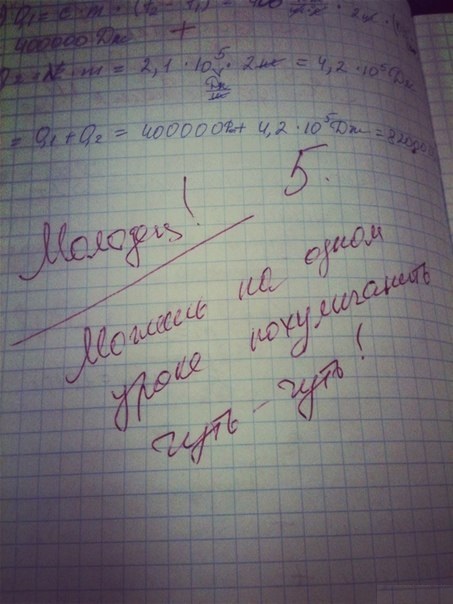 Q₁ = c · m · (t₂ - t₁) = 400 · 2
400000 Дж +
· m = 2,1 · 10⁵ Дж/кг · 2кг = 4,2 · 10⁵ Дж
= Q₁ + Q₂ = 400000Дж + 4,2 · 10⁵ Дж =
5.
Молодец!
Можешь на одном
уроке похулиганить
чуть - чуть!